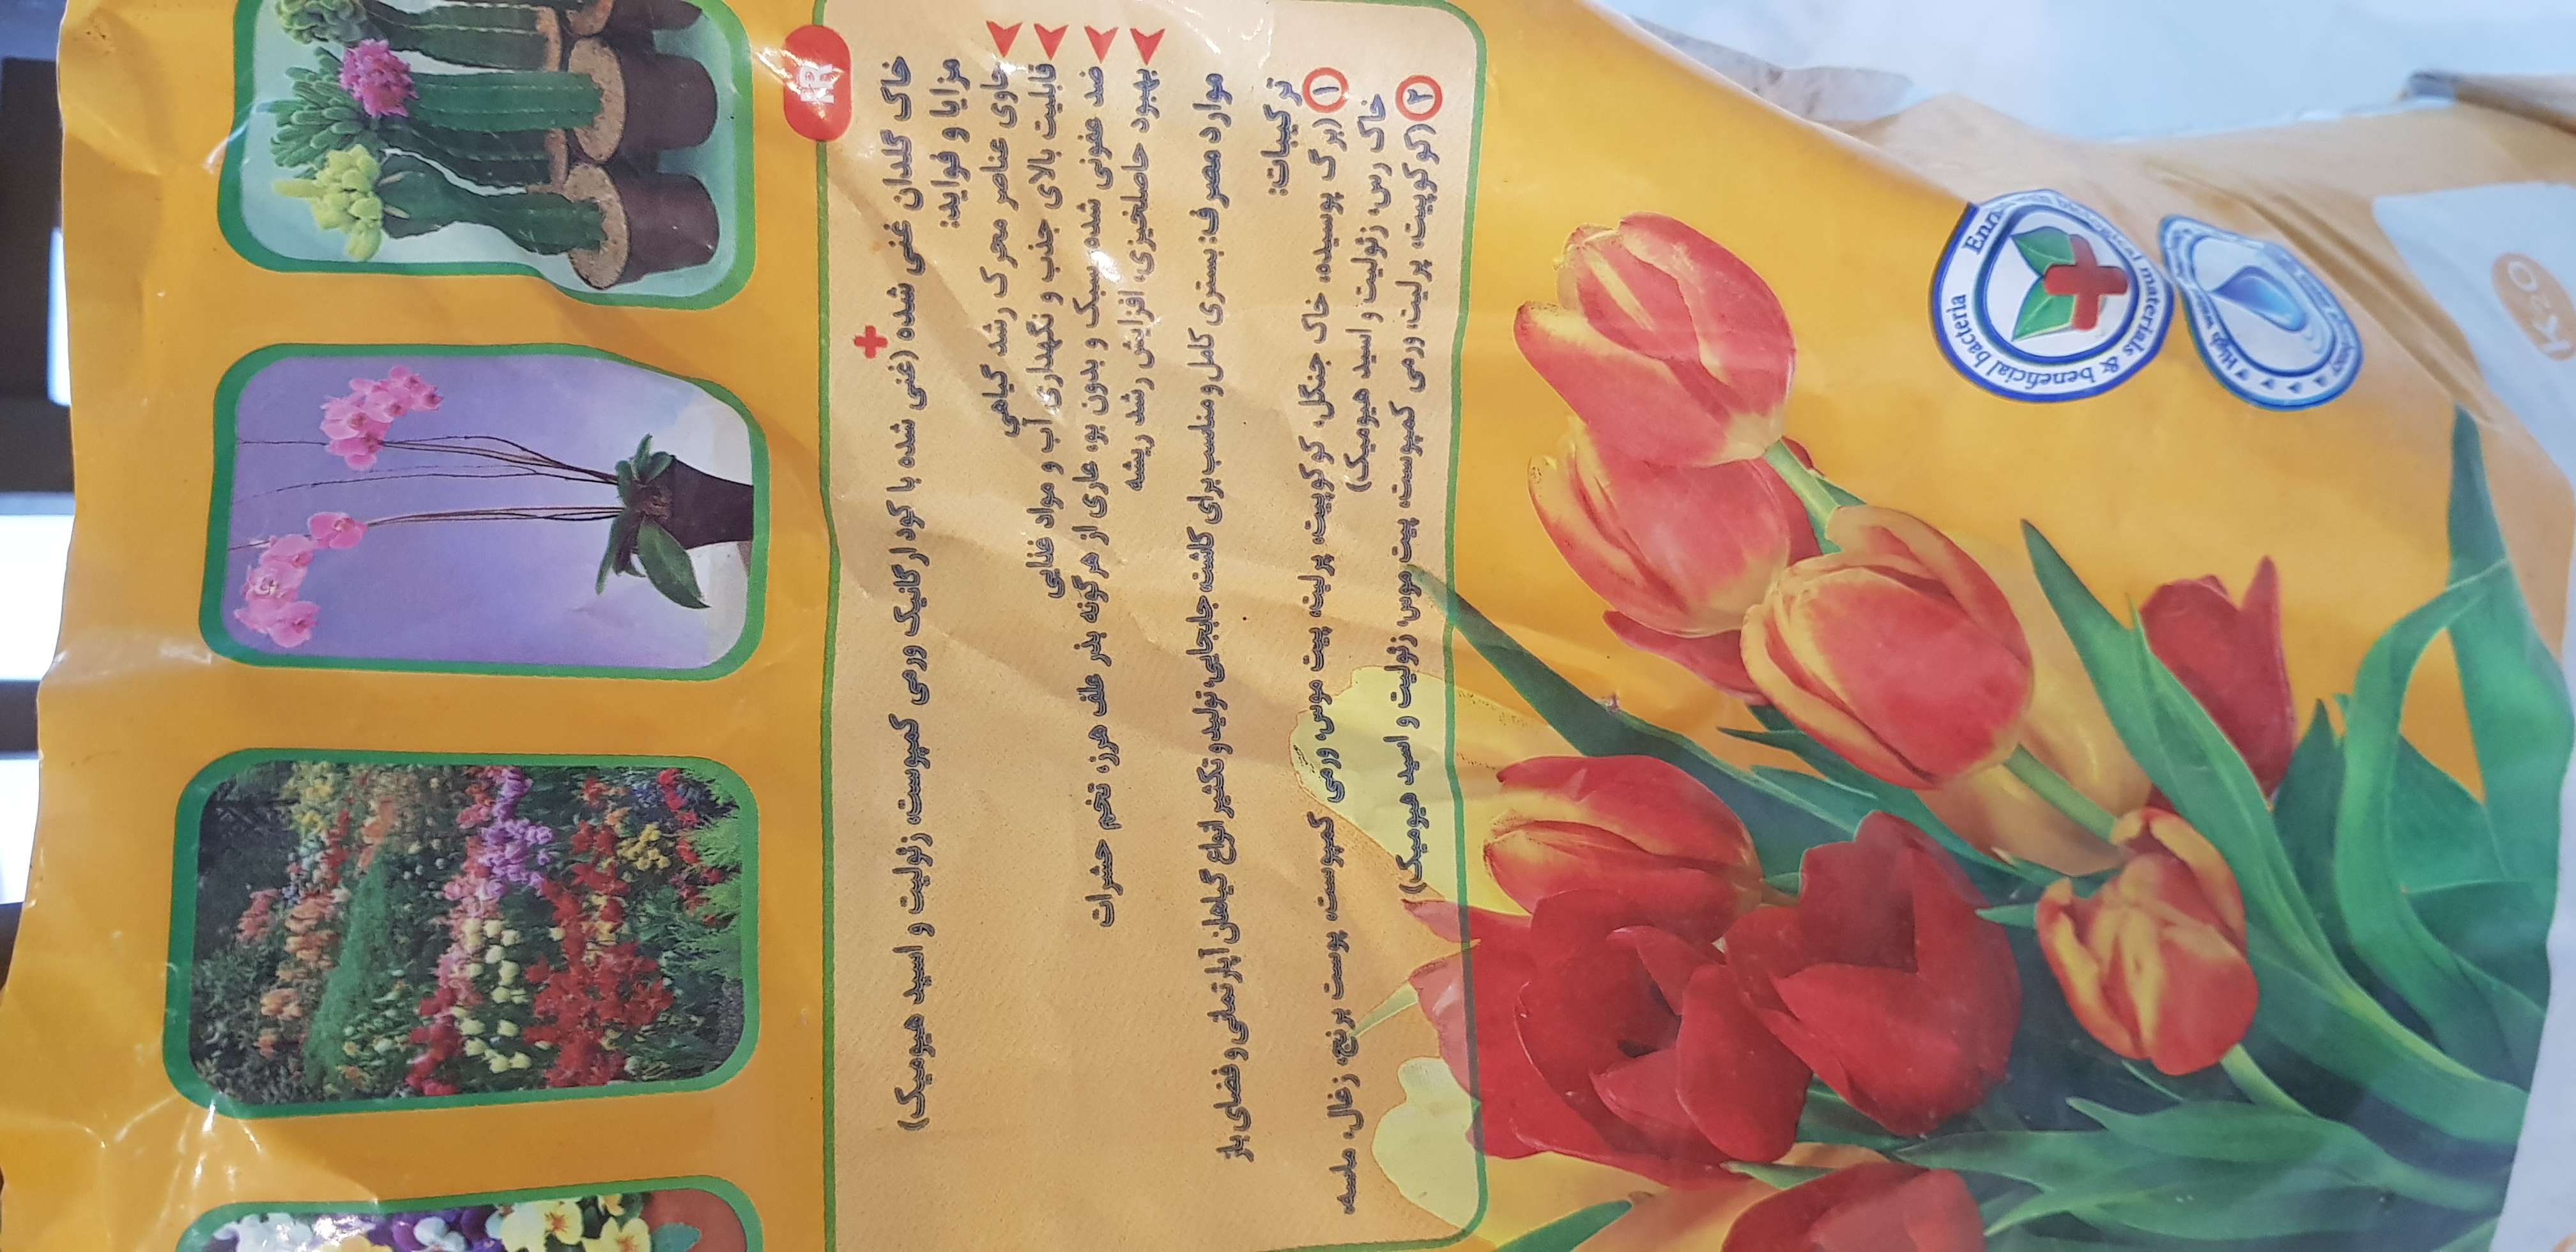 IR
خاک گلدان غنی شده (غنی شده با کود ارگانیک ورمی کمپوست، زئولیت و اسید هیومیک)
مزایا و فواید:
حاوی عناصر محرک رشد گیاهی
قابلیت بالای جذب و نگهداری آب و مواد غذایی
ضد عفونی شده، سبک و بدون بو، عاری از هرگونه بذر علف هرز، تخم حشرات
بهبود حاصلخیزی، افزایش رشد ریشه
موارد مصرف: بستری کامل و مناسب برای کاشت، جابجایی، تولید و تکثیر انواع گیاهان آپارتمانی و فضای باز
ترکیبات:
۱ (برگ پوسیده، خاک جنگل، کوکوپیت، پرلیت، پیت موس، ورمی کمپوست، پوست برنج، زغال، ماسه،
خاک رس، زئولیت و اسید هیومیک)
۲ (کوکوپیت، پرلیت، ورمی کمپوست، پیت موس، زئولیت و اسید هیومیک))
biological materials & beneficial bacteria
High
K2O